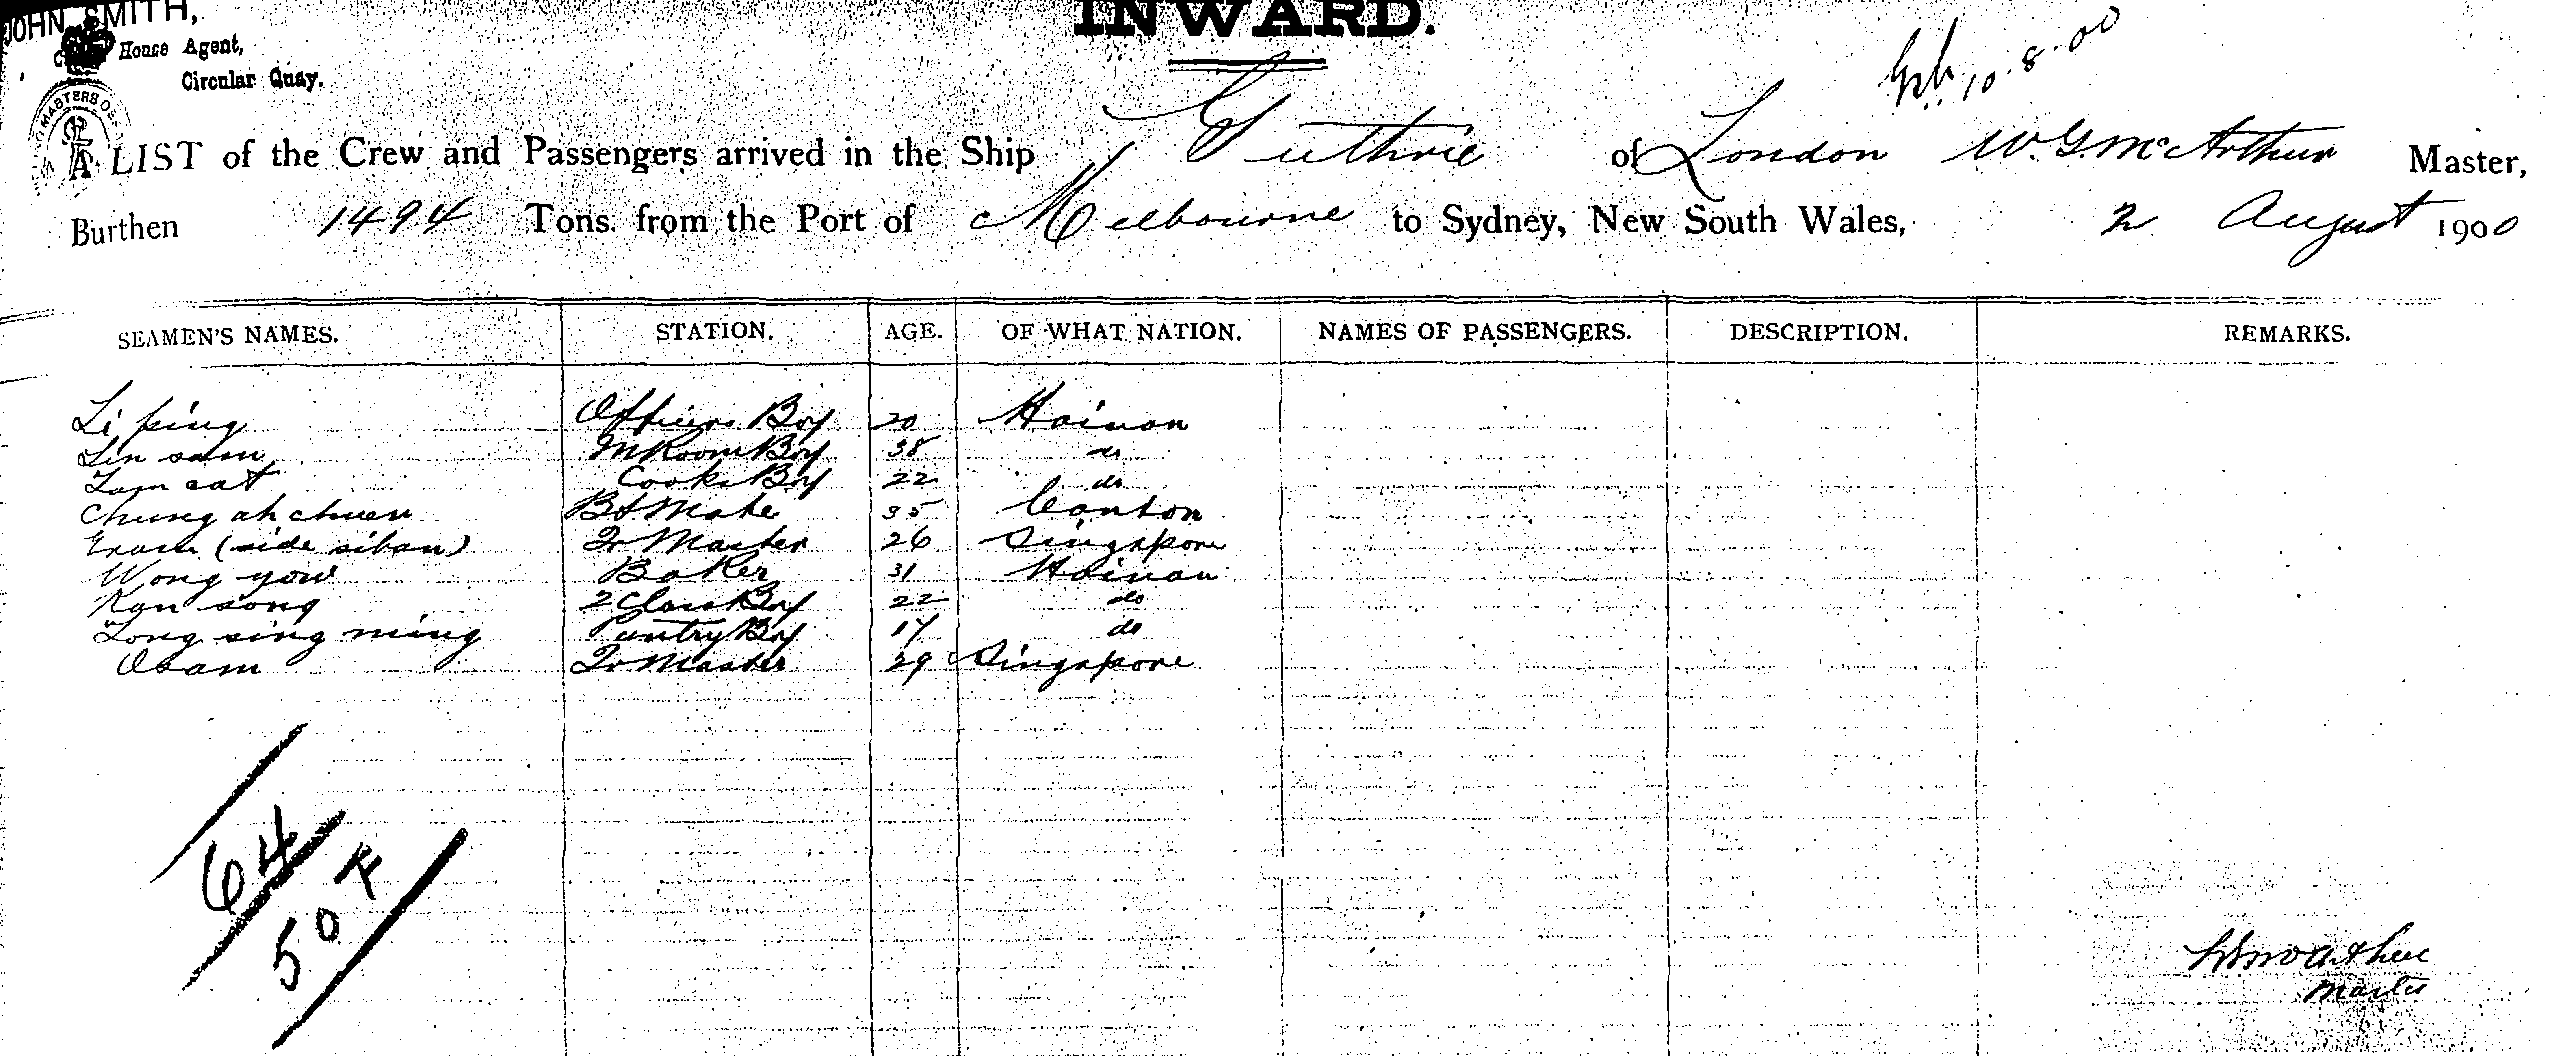 JOHN SMITH,
House Agent,
Circular Quay.
INWARD.
10.8.00
A LIST of the Crew and Passengers arrived in the Ship Guthrie of London W. G. McArthur Master,
Burthen 1494 Tons from the Port of Melbourne to Sydney, New South Wales, 2 August 1900
SEAMEN'S NAMES. STATION. AGE. OF WHAT NATION. NAMES OF PASSENGERS. DESCRIPTION. REMARKS.
Li ping Officers Boy 20 Hainan
Lin sam M Room Boy 38 do
Lam cat Cooks Boy 22 do
Chung ah chuen Bs Mate 35 Canton
(side siban) Qr Master 26 Singapore
Wong yow Baker 31 Hainan
Kan song 2 Class Boy 22 do
Long sing ming Pantry Boy 17 do
Osam Qr Master 29 Singapore
64
50
Master